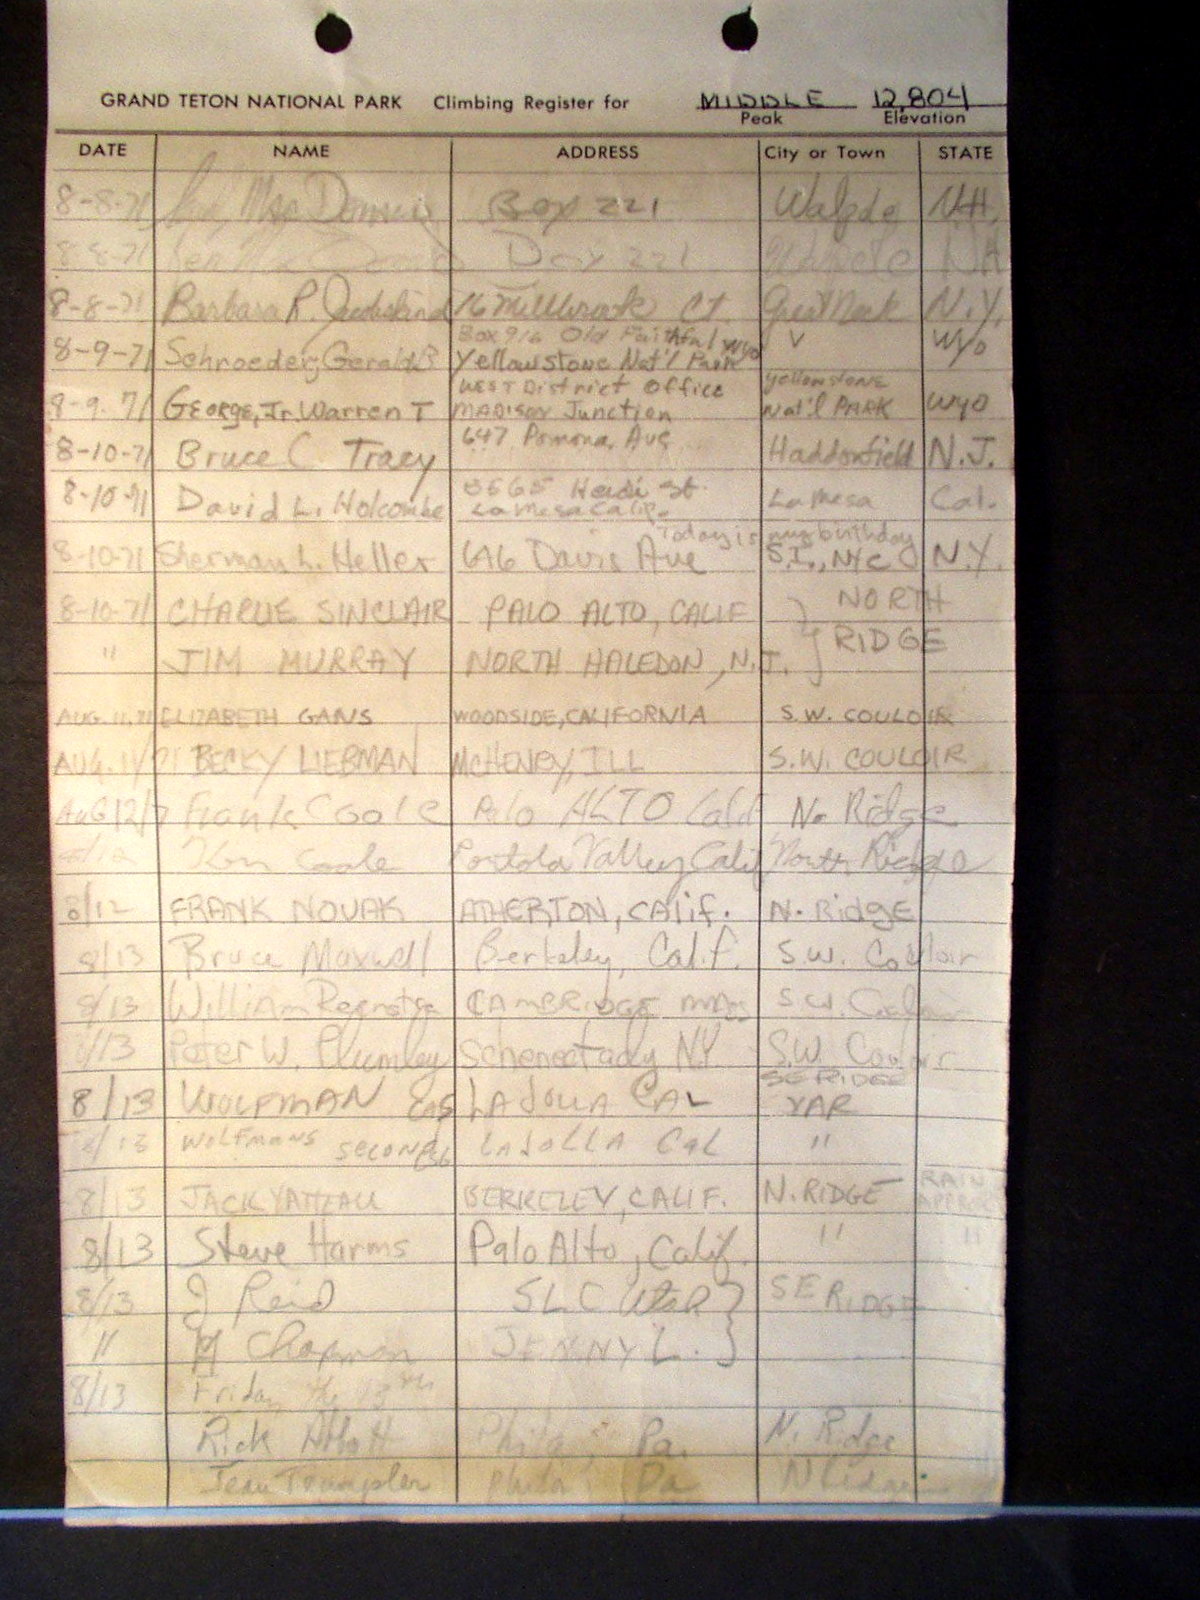 GRAND TETON NATIONAL PARK Climbing Register for MIDDLE 12,804
Peak Elevation
DATE NAME ADDRESS City or Town STATE
8-8-71 Box 221 N.H.
8-8-71 221
8-8-71 Barbara R. 16 Millbrook Ct. Great Neck N.Y.
Box 916 Old Faithful Wyo
8-9-71 Schroeder, Gerald B Yellowstone Nat'l Park V Wyo
WEST District Office Yellowstone
8-9-71 GEORGE, Jr. Warren T MADISON Junction Nat'l PARK WYO
8-10-71 Bruce C Tracy 647 Pomona Ave Haddonfield N.J.
8-10-71 David L. Holcombe Heidi St. La Mesa Calif. La Mesa Cal.
Today is my birthday
8-10-71 Sherman L. Heller 616 Davis Ave S.I., NYC N.Y.
8-10-71 CHARLIE SINCLAIR PALO ALTO, CALIF } NORTH
" JIM MURRAY NORTH HALEDON, N.J. RIDGE
AUG. 11, 71 ELIZABETH GANS WOODSIDE, CALIFORNIA S.W. COULOIR
AUG. 11/71 BECKY LIEBMAN McHENRY, ILL S.W. COULOIR
AUG 12/7 Frank Coale Palo ALTO Calif No Ridge
8/12 Coale Portola Valley Calif North Ridge
8/12 FRANK NOVAK ATHERTON, CALIF. N. Ridge
8/13 Bruce Maxwell Berkeley, Calif. S.W. Couloir
8/13 William CAMBRIDGE MASS S.W. Couloir
8/13 Peter W. Plumley Schenectady NY S.W. Couloir
SE RIDGE
8/13 WOLFMAN LA JOLLA CAL YAR
8/13 WOLFMANS SECOND LA JOLLA Cal "
8/13 JACK BERKELEY, CALIF. N. RIDGE RAIN
8/13 Steve Harms Palo Alto, Calif. " "
8/13 J Reid SLC Utah } SE RIDGE
" Chapman JENNY L. }
8/13 Friday the 13th
Rick Abbott Phila, Pa. N. Ridge
Jean Trumpler Phila Pa N Ridge